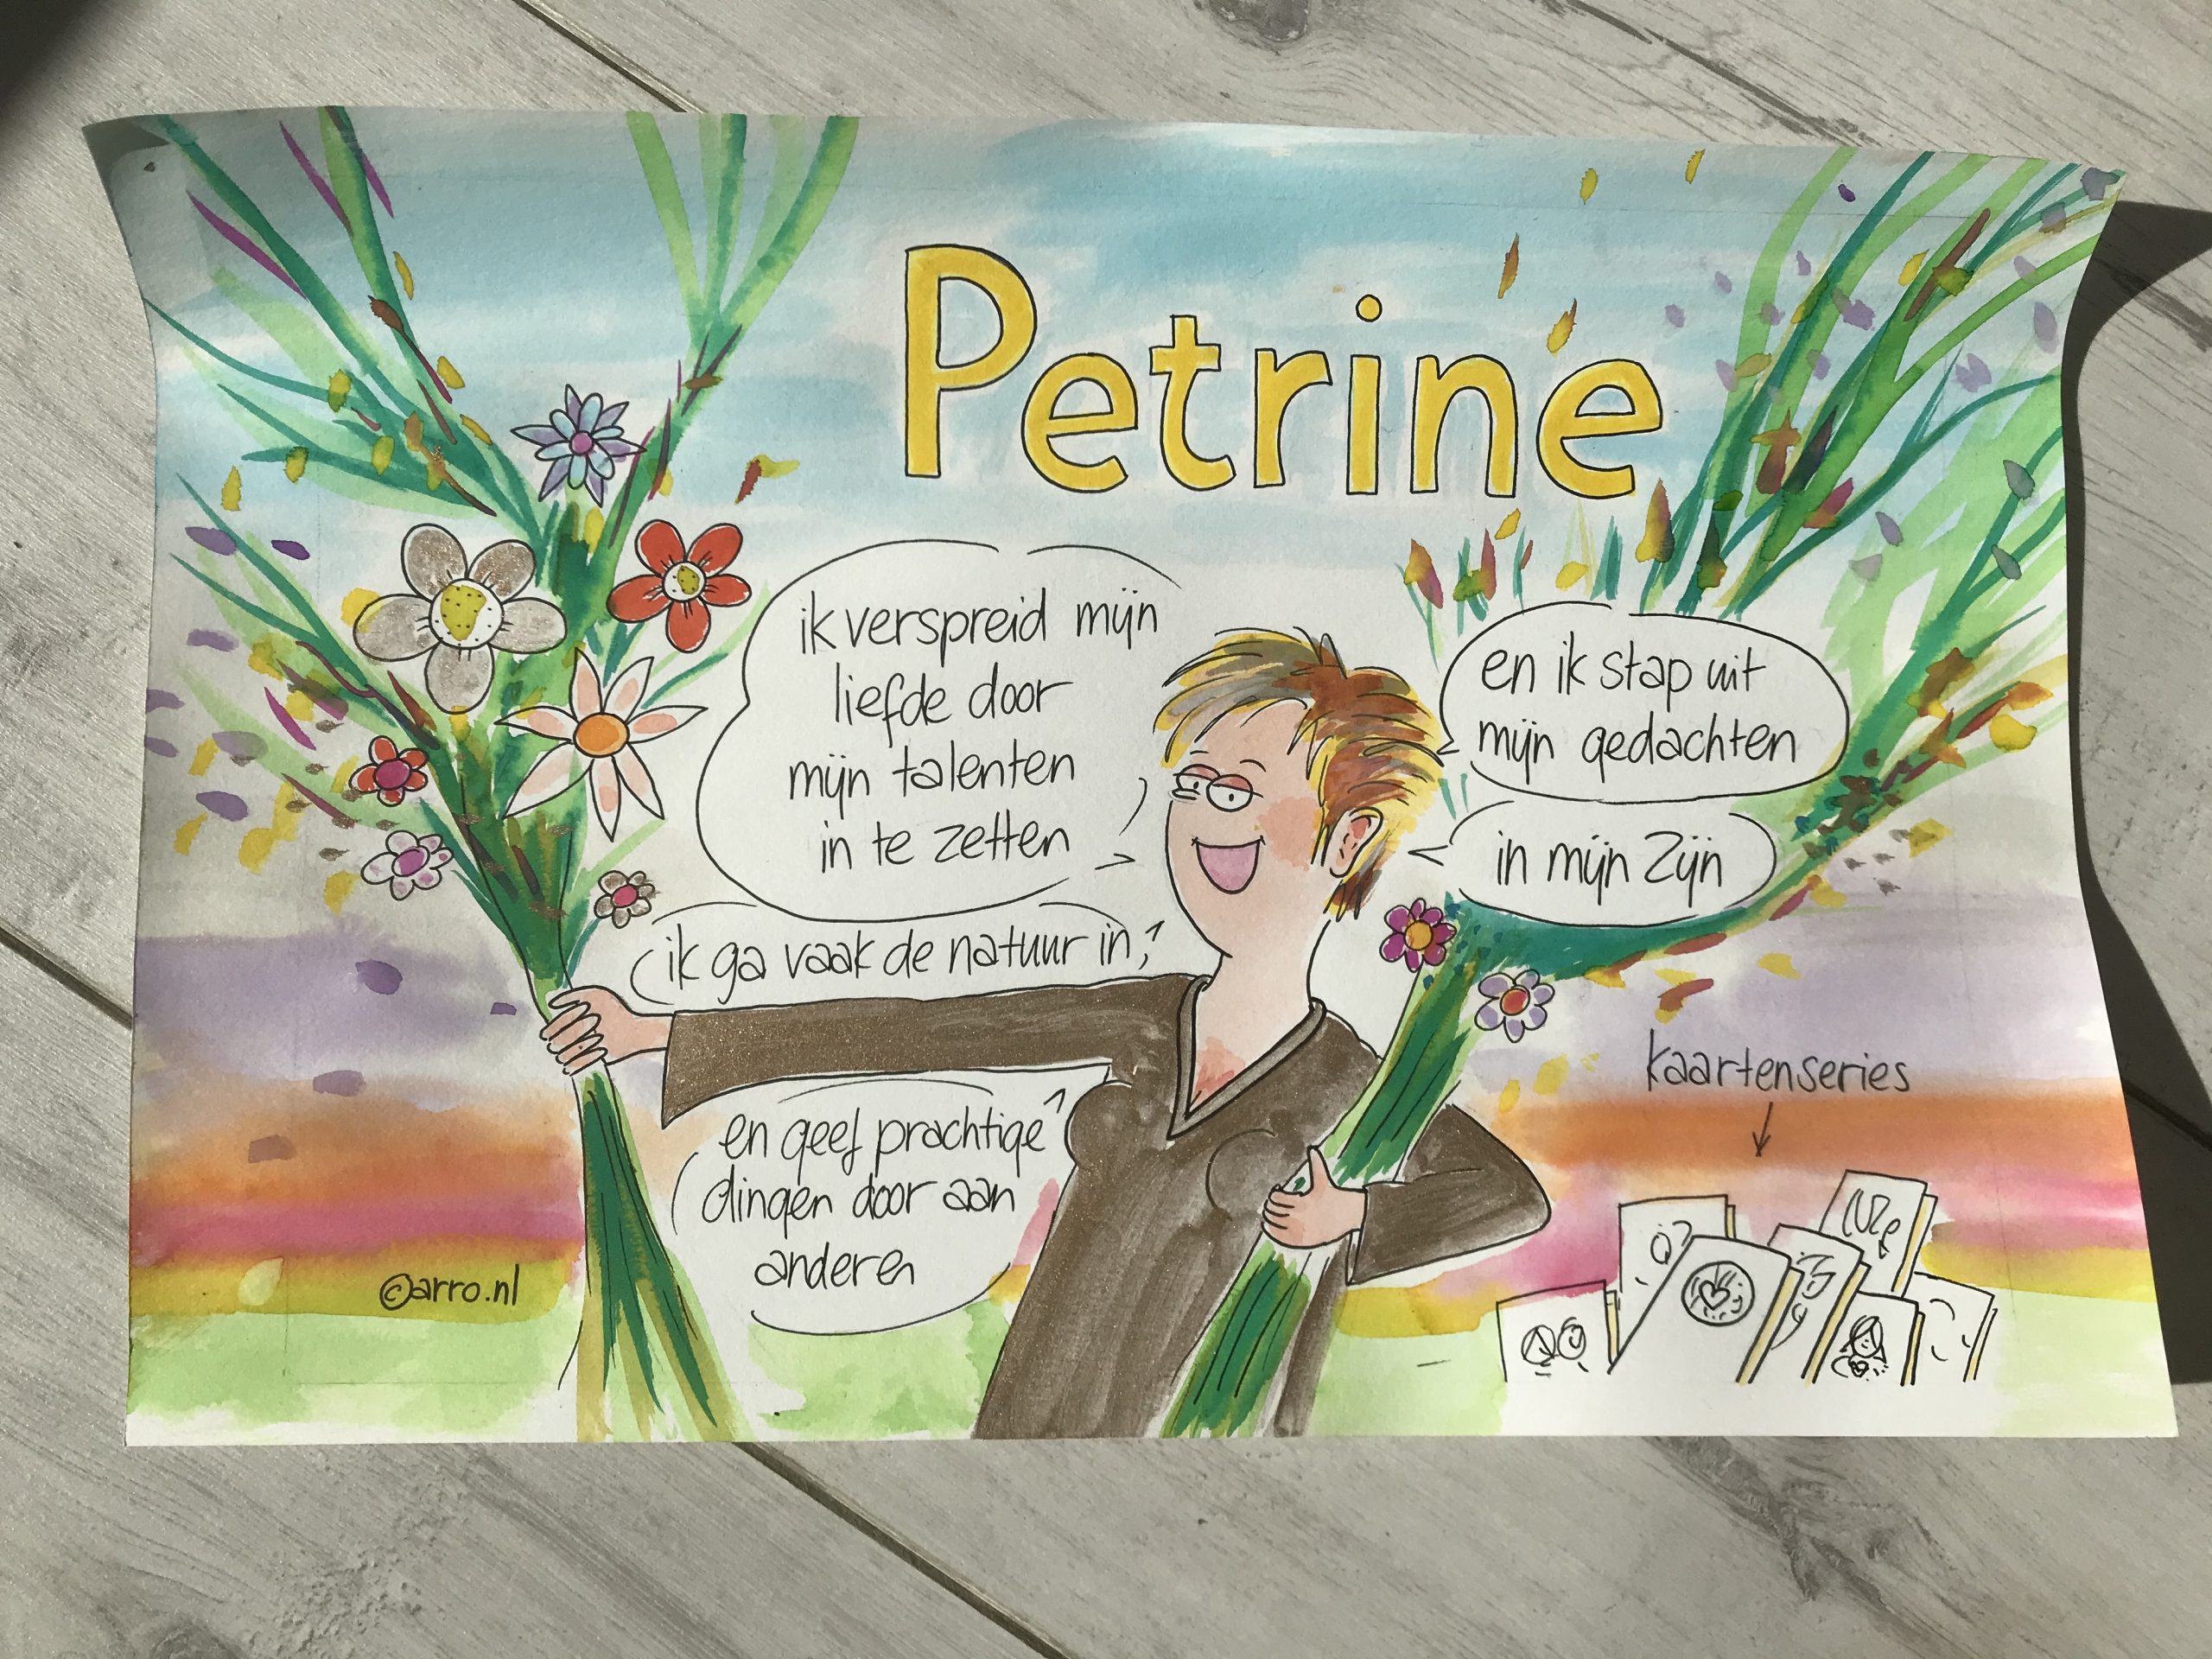 Petrine
ik verspreid mijn
liefde door
mijn talenten
in te zetten
en ik stap uit
mijn gedachten
in mijn zijn
ik ga vaak de natuur in,
en geef prachtige
dingen door aan
anderen
kaartenseries
©arro.nl